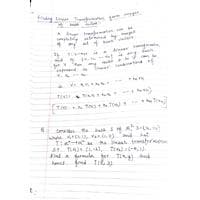 Finding Linear Transformation from images
of basis vectors.
A linear transformation can be
completely determined by images
of any set of basis vectors.
If T: V→W is a linear transformation
and if {v1, v2, ... vn} is any basis
for V then any vector v in V can be
expressed as linear combination of
v1, v2, ... vn
T(v) = k1 T(v1) + k2 T(v2) + ... + kn T(vn)
Q Consider the basis S of R² S={v1, v2}
where v1=(1,1), v2=(1,0) and let
T: R²→R² be the linear transformation
s.t. T(v1) = (1,-2), T(v2) = (-4,1).
Find a formula for T(x,y) and
hence find T(5,3)